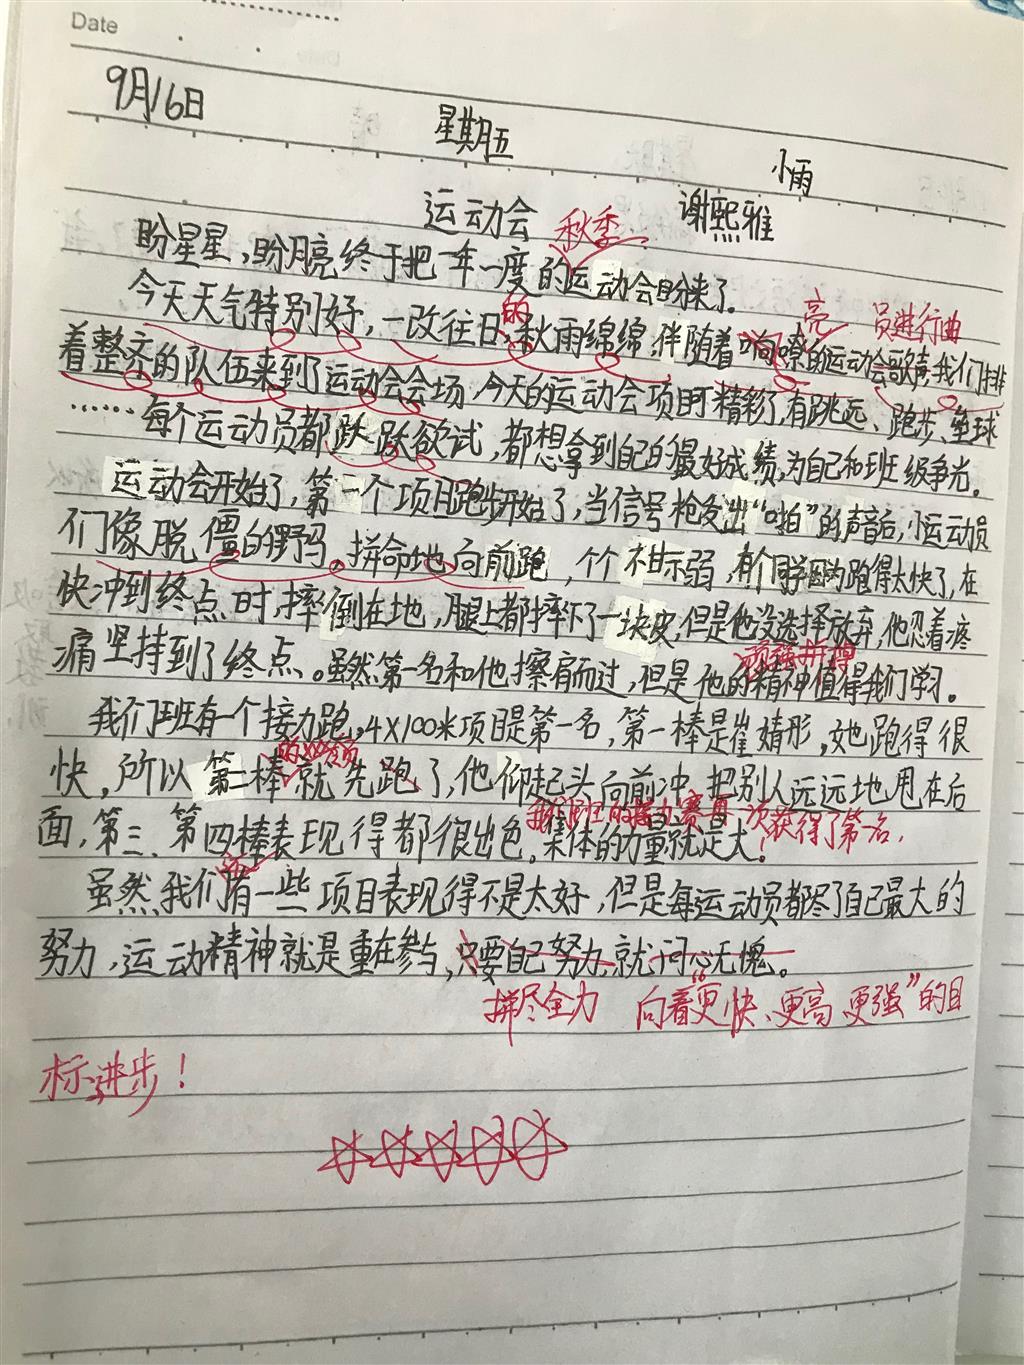 Date
9月16日 星期五 小雨
运动会 谢熙雅
秋季
盼星星,盼月亮终于把一年一度的运动会盼来了。
的 亮 员进行曲
今天天气特别好,一改往日,秋雨绵绵,伴随着响嘹的运动会歌声,我们排
着整齐的队伍来到了运动会会场,今天的运动会项目可精彩了,有跳远、跑步、垒球
……每个运动员都跃跃欲试,都想拿到自己的最好成绩,为自己和班级争光。
运动会开始了,第一个项目跑步开始了,当信号枪发出“啪”的声音后,小运动员
们像脱僵的野马,拼命地向前跑,个个不甘示弱,有个同学因为跑得太快了,在
快冲到终点时,摔倒在地,腿上都摔下了一块皮,但是他没选择放弃,他忍着疼
顽强拼搏
痛坚持到了终点。虽然第一名和他擦肩而过,但是他的精神值得我们学习。
我们班有一个接力跑,4×100米项目是第一名,第一棒是崔婧彤,她跑得很
快,所以第二棒就先跑了,他仰起头向前冲,把别人远远地甩在后
我们班的接力赛再次获得了第一名,
面,第三、第四棒表现得都很出色。集体的力量就是大!
虽然我们有一些项目表现得不是太好,但是每运动员都尽了自己最大的
努力,运动精神就是重在参与,只要自己努力,就问心无愧。
拼尽全力 向着“更快、更高、更强”的目
标进步!